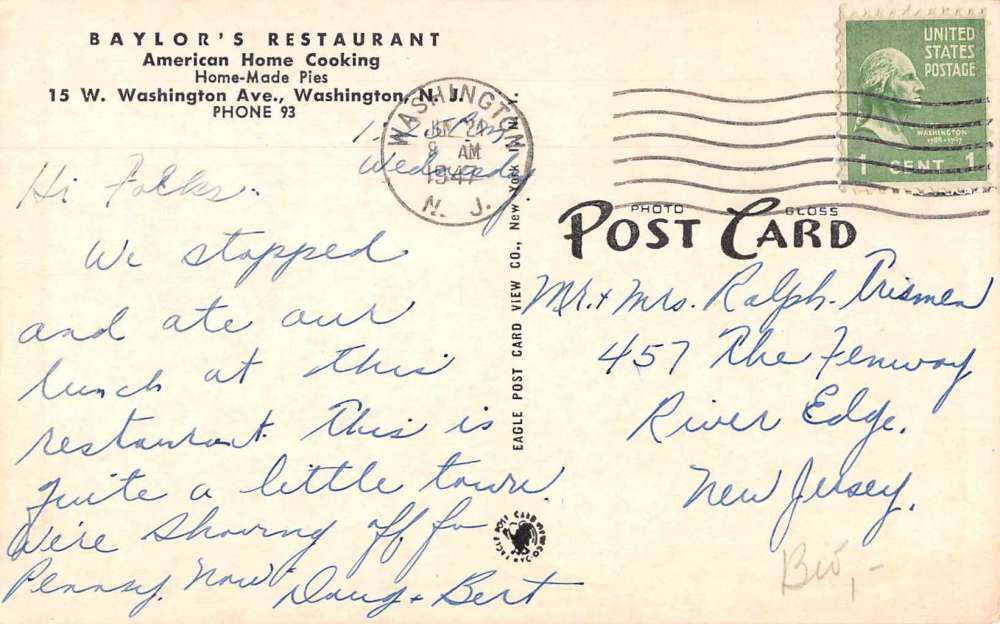 BAYLOR'S RESTAURANT
American Home Cooking
Home-Made Pies
15 W. Washington Ave., Washington, N. J.
PHONE 93
Wednesday
Hi Folks.
We stopped
and ate our
lunch at this
restaurant. This is
quite a little town.
We're shoving off for
Pennsy. now
Doug + Bert
WASHINGTON
8 AM
1947
N. J.
UNITED
STATES
POSTAGE
WASHINGTON
1789-1797
1 CENT 1
PHOTO GLOSS
POST CARD
EAGLE POST CARD VIEW CO., New York 1, N. Y.
EAGLE POST CARD VIEW CO.
Mr. + Mrs. Ralph
457 The Fenway
River Edge.
New Jersey.